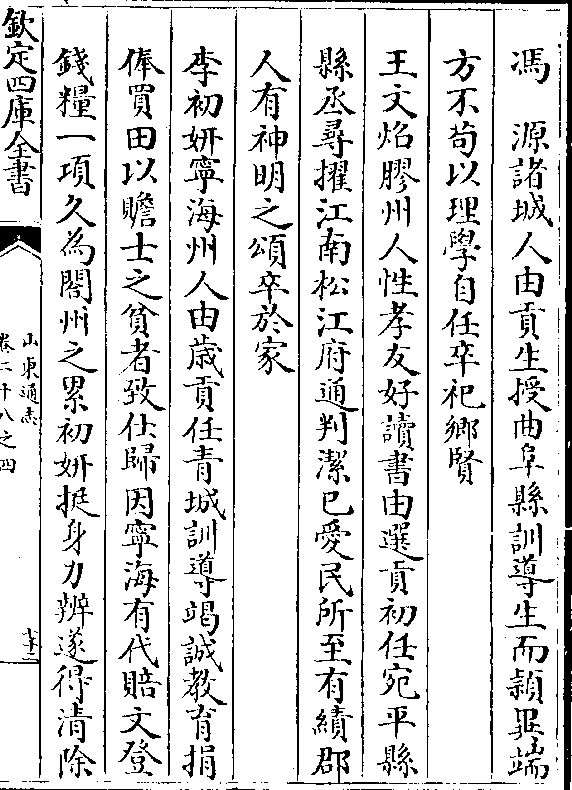 馮　源諸城人由貢生授曲阜縣訓導生而穎異端
方不苟以理學自任卒祀鄉賢
王文焰膠州人性孝友好讀書由選貢初任宛平縣
縣丞尋擢江南松江府通判潔已愛民所至有績郡
人有神明之頌卒於家
李初妍寧海州人由歲貢任青城訓導竭誠教育捐
俸買田以贍士之貧者致仕歸因寧海有代賠文登
錢糧一項久為閤州之累初妍挺身力辨遂得清除
欽定四庫全書
山東通志
卷二十八之四